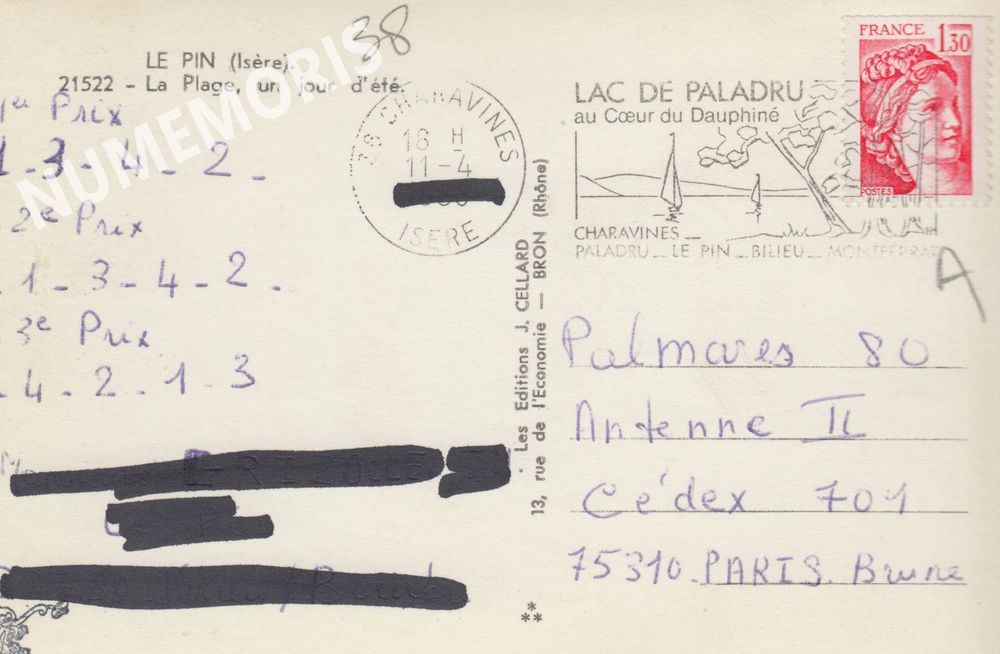 38
LE PIN (Isère).
21522 - La Plage, un jour d'été.
NUMEMORIS
1er Prix
1 - 3 - 4 - 2 -
2e Prix
1 - 3 - 4 - 2 -
3e Prix
4 - 2 - 1 - 3
38 CHARAVINES
16 H
11-4
ISERE
Les Editions J. CELLARD
13, rue de l'Economie — BRON (Rhône)
LAC DE PALADRU
au Cœur du Dauphiné
CHARAVINES_
PALADRU_ LE PIN_ BILIEU_ MONTFERRAT
FRANCE 1,30
POSTES
A
Palmares 80
Antenne II
Cédex 701
75310. PARIS. Brune